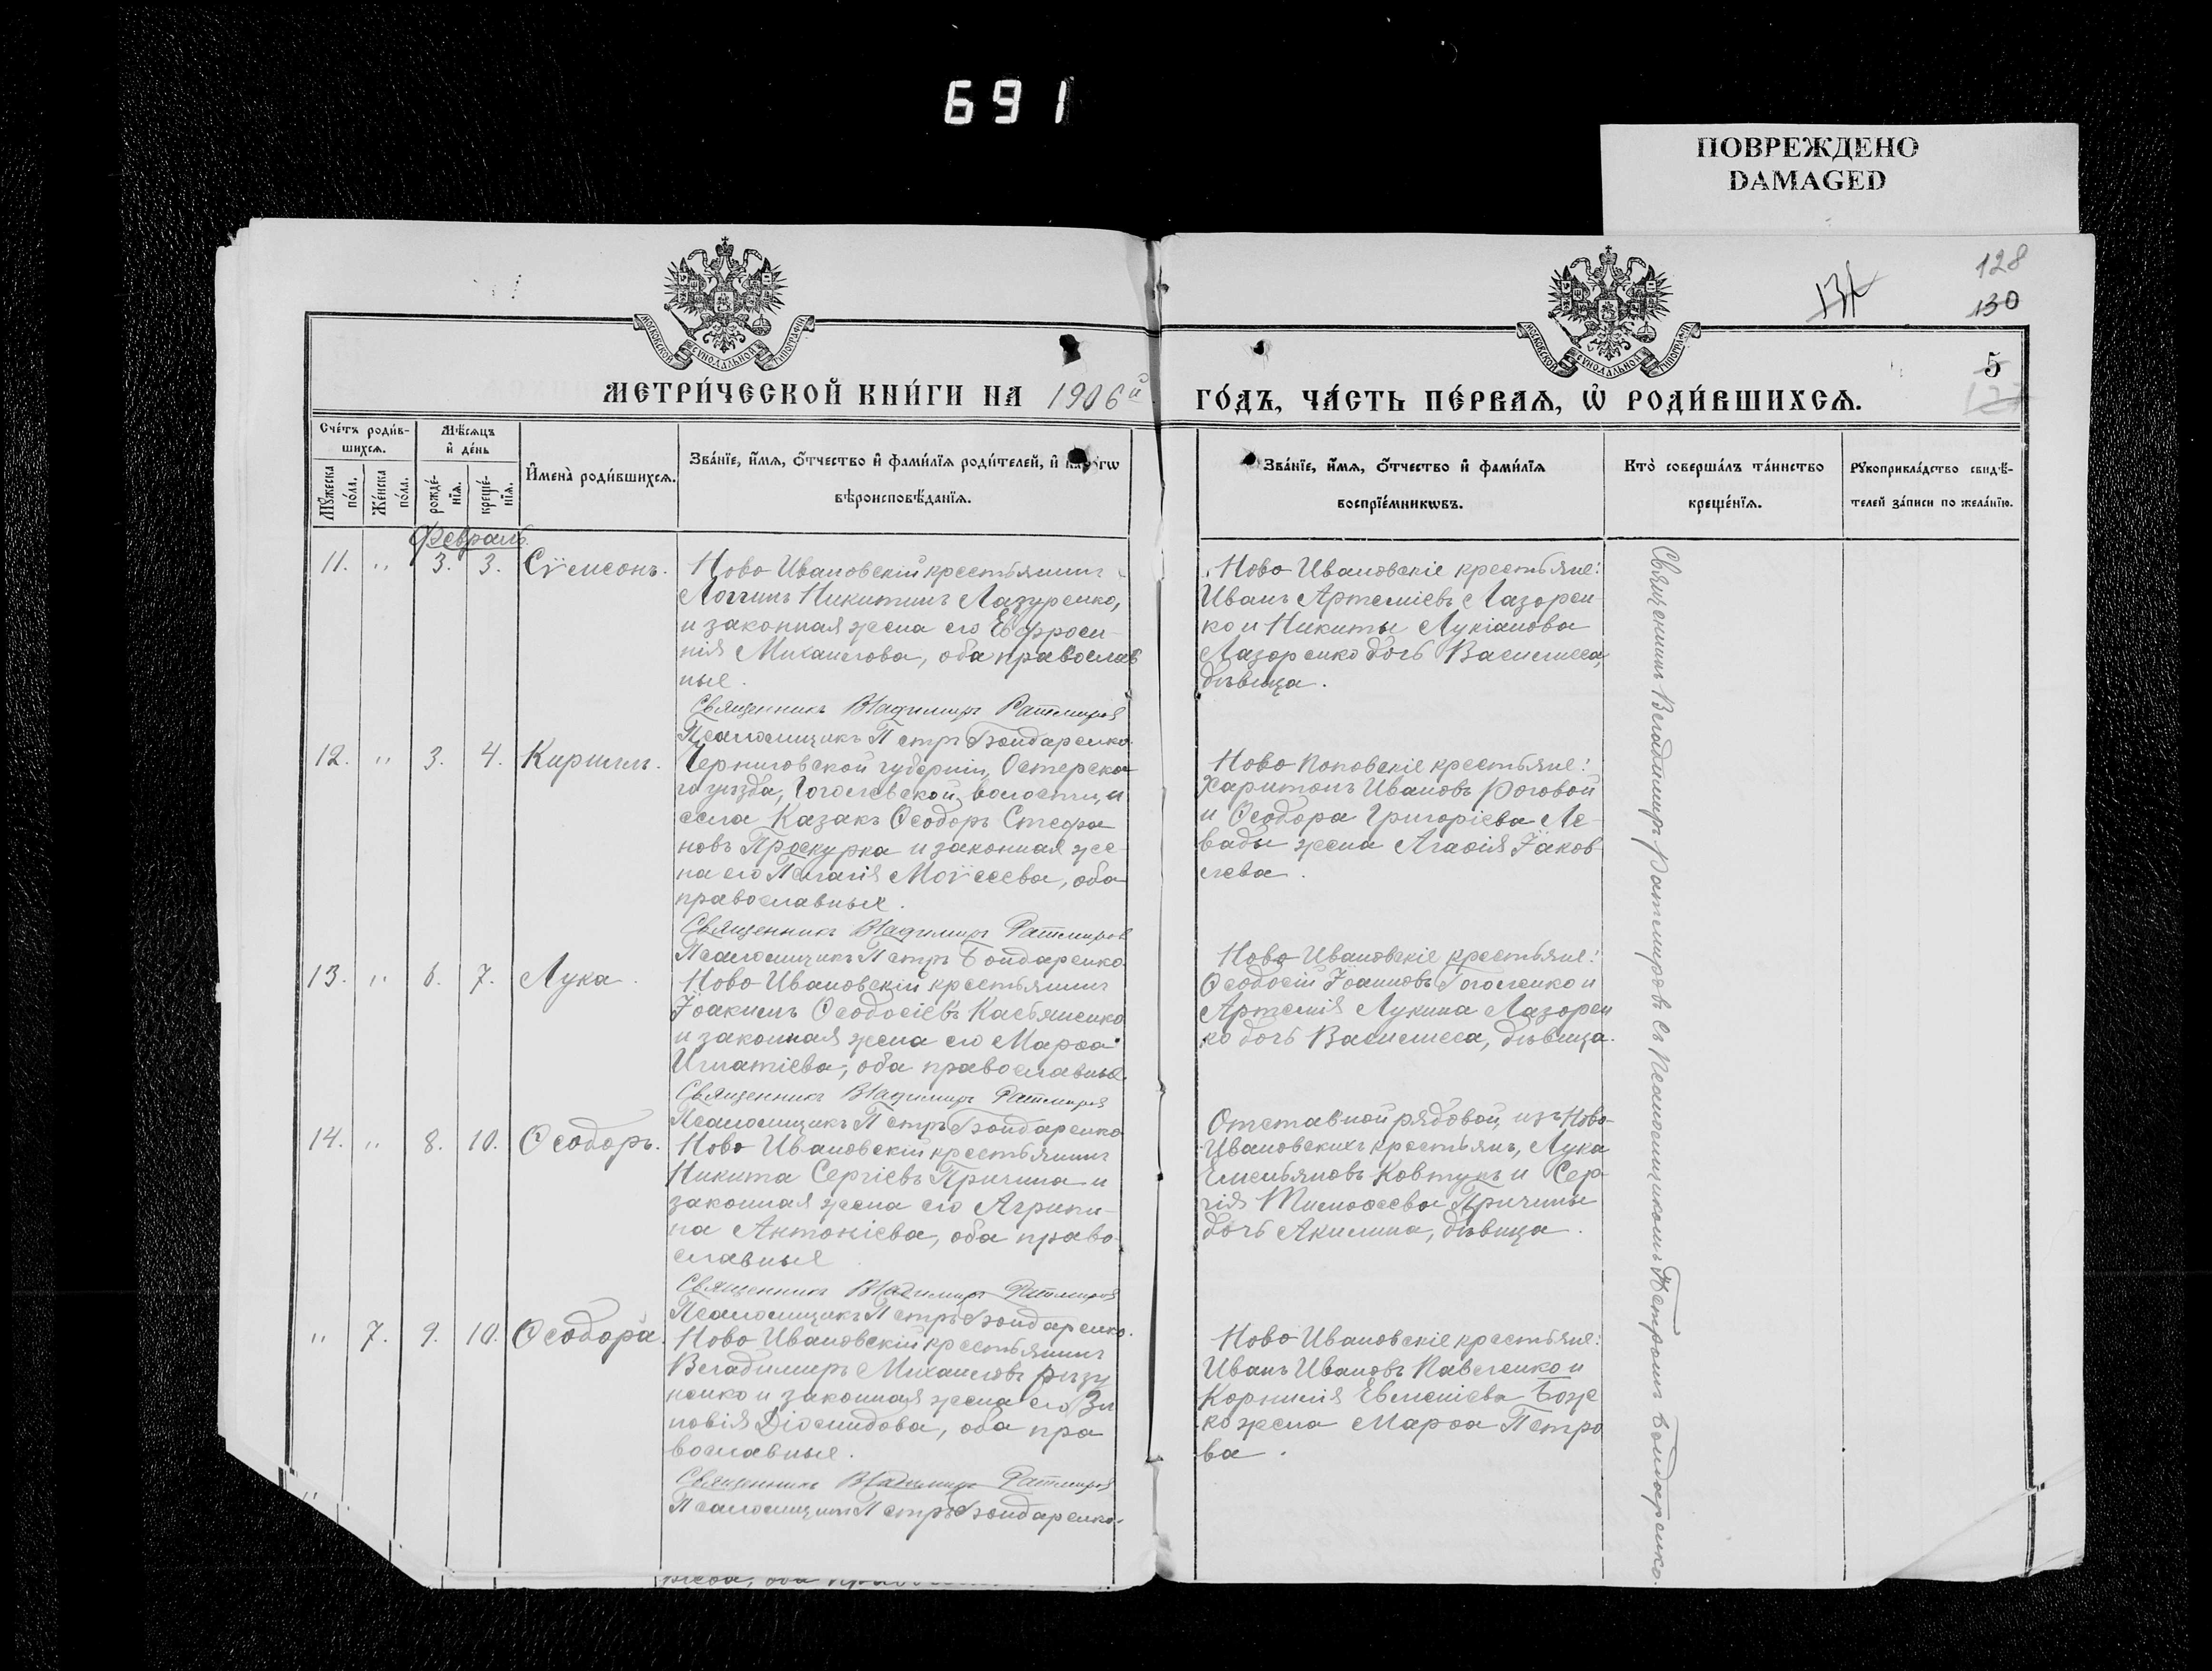 691
ПОВРЕЖДЕНО
DAMAGED
128
130
5
МОСКОВСКОЙ СѴНОДАЛЬНОЙ ТИПОГРАФІИ
МОСКОВСКОЙ СѴНОДАЛЬНОЙ ТИПОГРАФІИ
МЕТРИ́ЧЕСКОЙ КНИ́ГИ НА 1906й
ГО́ДЪ, ЧА́СТЬ ПЕ́РВАѦ, Ѽ РОДИ́ВШИХСѦ.
Сче́тъ роди́в-
шихсѧ.
Мꙋжеска по́ла.
Же́нска по́ла.
Мѣ́сѧцъ
и҆ де́нь
рожде́-
нїѧ.
креще́-
нїѧ.
И҆мена̀ роди́вшихсѧ.
Зва́нїе, и҆́мѧ, ѻ҆́тчество и҆ фами́лїѧ роди́телей, и҆
вѣроисповѣ́данїѧ.
Зва́нїе, и҆́мѧ, ѻ҆́тчество и҆ фами́лїѧ
воспрїе́мникѡвъ.
Кто̀ соверша́лъ та́инство
креще́нїѧ.
Рꙋкоприкла́дство свидѣ́-
телей за́писи по жела́нїю.
Февраль.
11. " 3. 3. Сѵмеонъ.
Ново Ивановскій крестьянинъ
Логгинъ Никитинъ Лазуренко,
и законная жена его Евфроси-
нія Михаилова, оба православ
ные.
Священникъ Владимиръ Ратмировъ
Псаломщикъ Петръ Бондаренко.
Ново Ивановскіе крестьяне:
Иванъ Артеміевъ Лазорен
ко и Никиты Лукіанова
Лазоренко дочь Василисса,
дѣвица.
12. " 3. 4. Кириллъ.
Черниговской губерніи, Остерска-
го уѣзда, Гоголевской волости, и
села Казакъ Ѳеодоръ Стефа
новъ Проскурка и законная же-
на его Пелагія Моѵсеева, оба
православные.
Священникъ Владимиръ Ратмировъ
Псаломщикъ Петръ Бондаренко.
Ново Поповскіе крестьяне:
Харитонъ Ивановъ Роговой
и Ѳеодора Григоріева Ле-
вады жена Агаѳія Іаков
лева.
13. " 6. 7. Лука.
Ново Ивановскій крестьянинъ
Іоакимъ Ѳеодосіевъ Касьяненко
и законная жена его Марѳа
Игнатіева, оба православные.
Священникъ Владимиръ Ратмировъ
Псаломщикъ Петръ Бондаренко
Ново Ивановскіе крестьяне:
Ѳеодосій Іоанновъ Гоголенко и
Артемія Лукина Лазорен
ко дочь Василисса, дѣвица.
14. " 8. 10. Ѳеодоръ.
Ново Ивановскій крестьянинъ
Никита Сергіевъ Причина и
законная жена его Агрипи-
на Антоніева, оба право-
славные
Священникъ Владимиръ Ратмировъ
Псаломщикъ Петръ Бондаренко.
Отставной рядовой, изъ Ново-
Ивановскихъ крестьянъ, Лука
Емельяновъ Ковтунъ и Сер-
гія Тимоѳеева Причины
дочь Акилина, дѣвица.
" 7. 9. 10. Ѳеодора.
Ново Ивановскій крестьянинъ
Владимиръ Михаиловъ Рызу
ненко и законная жена его Зи
новія Діомидова, оба пра
вославные.
Священникъ Владимиръ Ратмировъ
Псаломщикъ Петръ Бондаренко.
Ново Ивановскіе крестьяне:
Иванъ Ивановъ Павленко и
Корнилія Евменіева Боже
ко жена Марѳа Петро
ва.
Священникъ Владимиръ Ратмировъ съ Псаломщикомъ Петромъ Бондаренко.